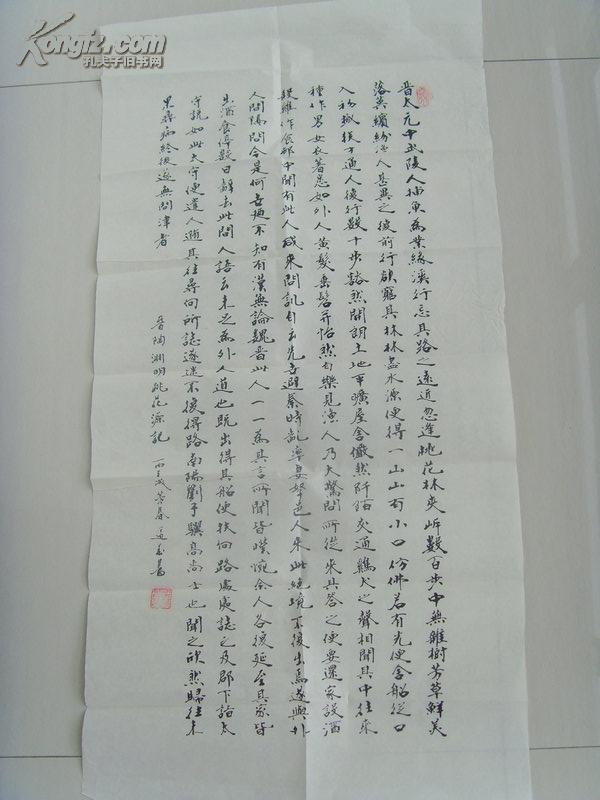 Kongfz.com
孔夫子旧书网
晋太元中武陵人捕鱼為業緣溪行忘其路之遠近忽逢桃花林夾岸數百步中無雜樹芳草鮮美
落英繽紛漁人甚異之復前行欲窮其林林盡水源便得一山山有小口仿佛若有光便舍船從口
入初極狹才通人復行數十步豁然開朗土地平曠屋舍儼然阡陌交通雞犬之聲相聞其中往來
種作男女衣著悉如外人黃髮垂髫并怡然自樂見漁人乃大驚問所從來具答之便要還家設酒
殺雞作食邨中聞有此人咸來問訊自云先世避秦時亂率妻孥邑人來此絕境不復出焉遂與外
人間隔問今是何世乃不知有漢無論魏晉此人一一為具言所聞皆嘆惋余人各復延至其家皆
出酒食停數日辭去此間人語云未足為外人道也既出得其船便扶向路處處誌之及郡下詣太
守說如此太守便遣人隨其往尋向所誌遂迷不復得路南陽劉子驥高尚士也聞之欣然歸往未
果尋病終後遂無問津者
晉陶淵明桃花源記